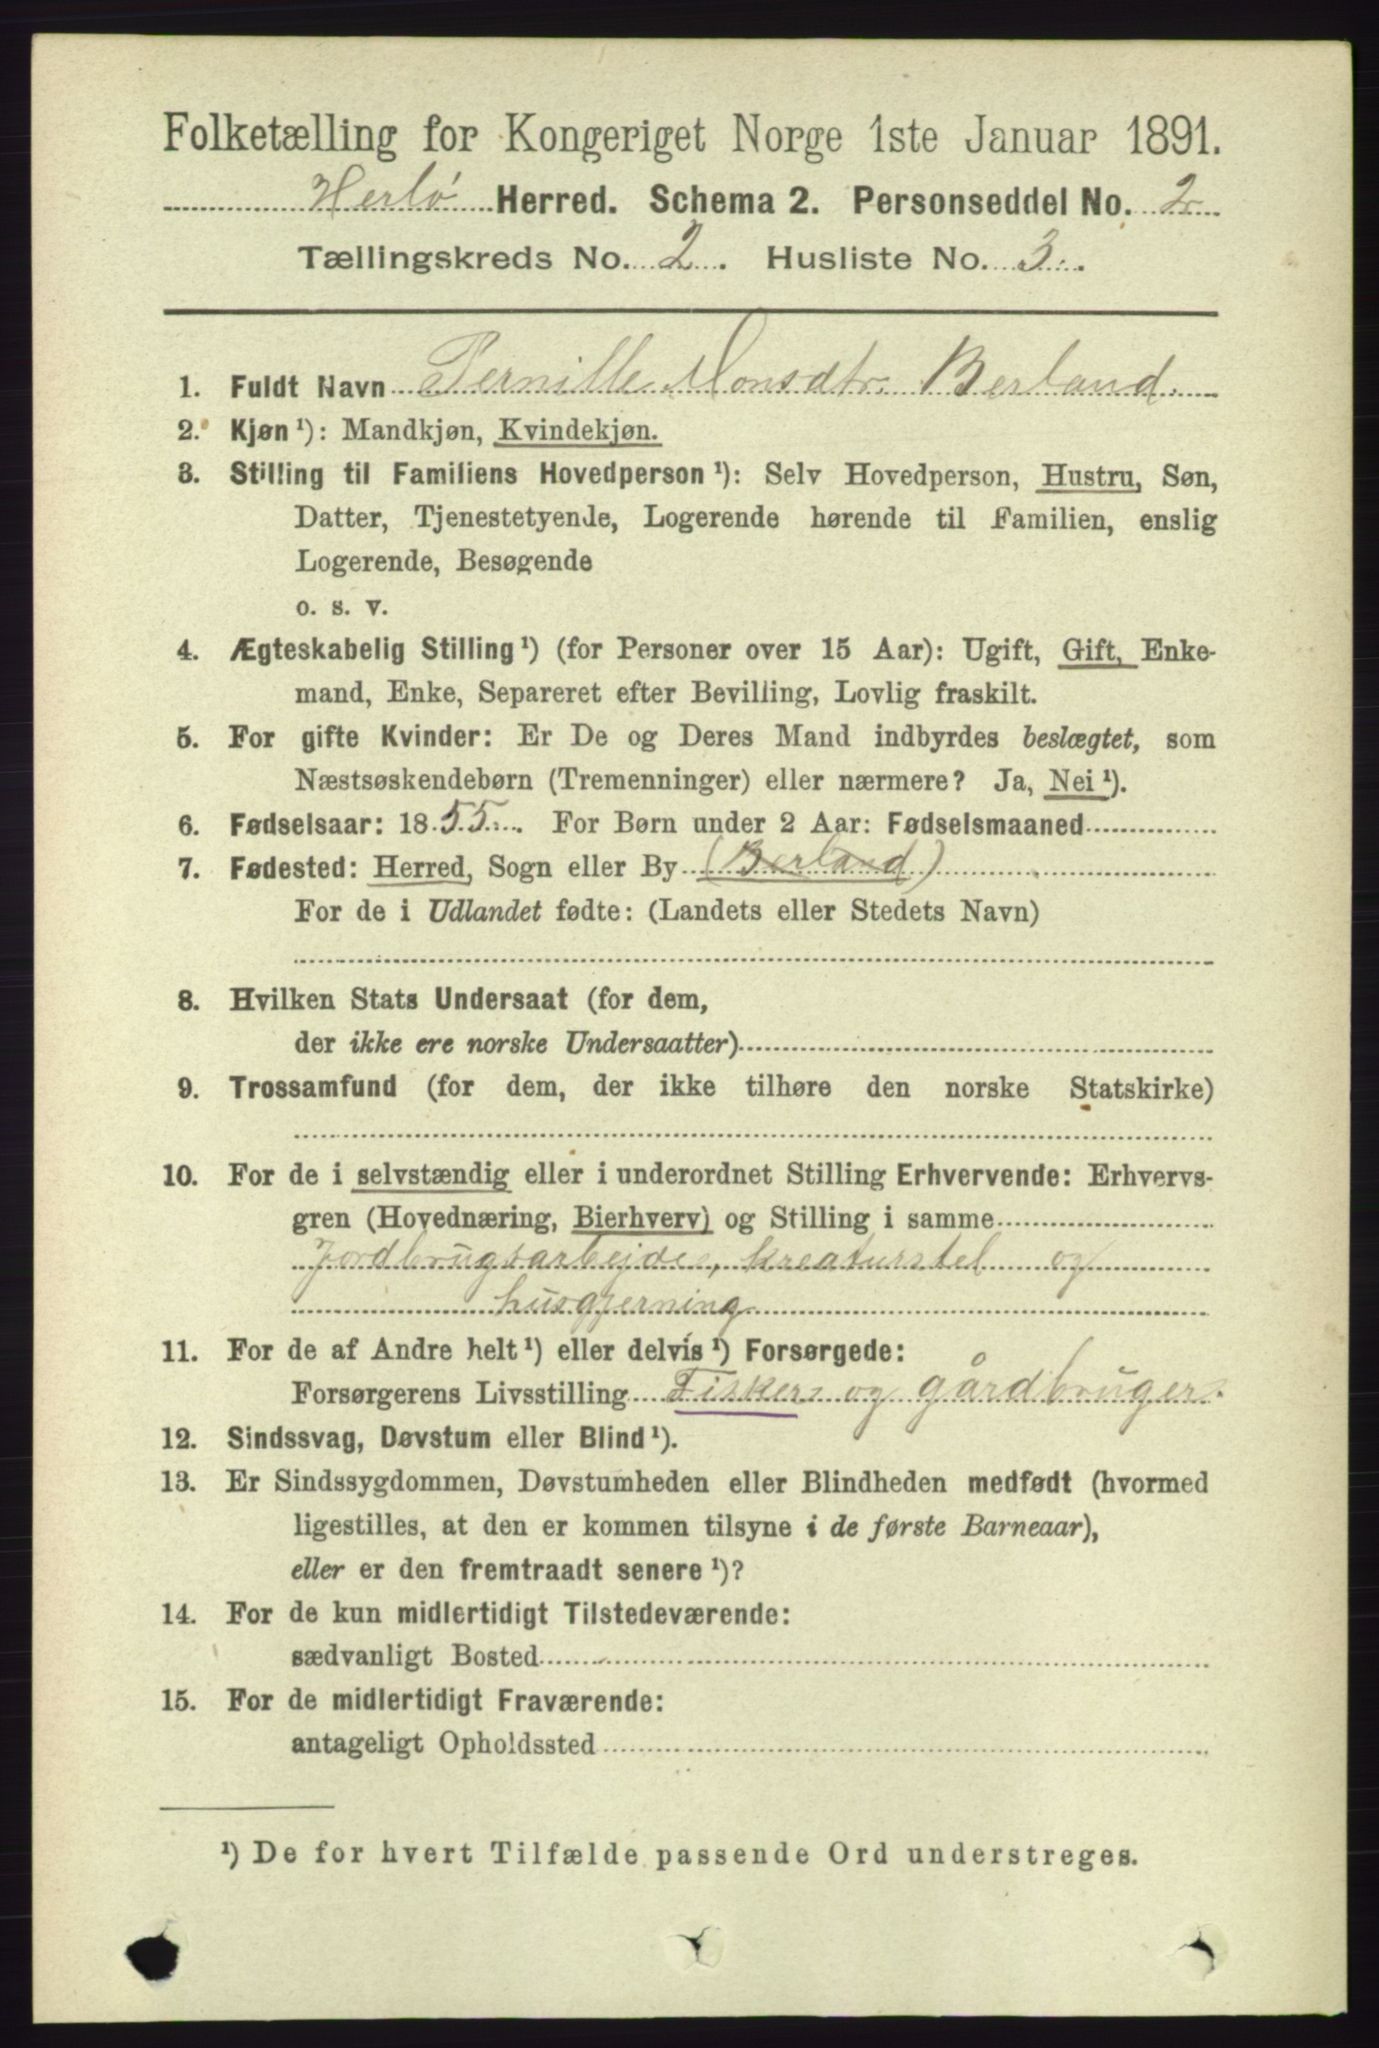 Folketælling for Kongeriget Norge 1ste Januar 1891.
Herlö Herred. Schema 2. Personseddel No. 2
Tællingskreds No. 2. Husliste No. 3.
1. Fuldt Navn Pernille Monsdtr. Berland.
2. Kjøn ¹): Mandkjøn, Kvindekjøn.
3. Stilling til Familiens Hovedperson ¹): Selv Hovedperson, Hustru, Søn,
Datter, Tjenestetyende, Logerende hørende til Familien, enslig
Logerende, Besøgende
o. s. v.
4. Ægteskabelig Stilling ¹) (for Personer over 15 Aar): Ugift, Gift, Enke-
mand, Enke, Separeret efter Bevilling, Lovlig fraskilt.
5. For gifte Kvinder: Er De og Deres Mand indbyrdes beslægtet, som
Næstsøskendebørn (Tremenninger) eller nærmere? Ja, Nei ¹).
6. Fødselsaar: 1855. For Børn under 2 Aar: Fødselsmaaned
7. Fødested: Herred, Sogn eller By (Berland)
For de i Udlandet fødte: (Landets eller Stedets Navn)
8. Hvilken Stats Undersaat (for dem,
der ikke ere norske Undersaatter)
9. Trossamfund (for dem, der ikke tilhøre den norske Statskirke)
10. For de i selvstændig eller i underordnet Stilling Erhvervende: Erhvervs-
gren (Hovednæring, Bierhverv) og Stilling i samme
Jordbrugsarbejde, kreaturstel og
husgjerning
11. For de af Andre helt ¹) eller delvis ¹) Forsørgede:
Forsørgerens Livsstilling Fisker og gårdbruger.
12. Sindssvag, Døvstum eller Blind ¹).
13. Er Sindssygdommen, Døvstumheden eller Blindheden medfødt (hvormed
ligestilles, at den er kommen tilsyne i de første Barneaar),
eller er den fremtraadt senere ¹)?
14. For de kun midlertidigt Tilstedeværende:
sædvanligt Bosted
15. For de midlertidigt Fraværende:
antageligt Opholdssted
¹) De for hvert Tilfælde passende Ord understreges.